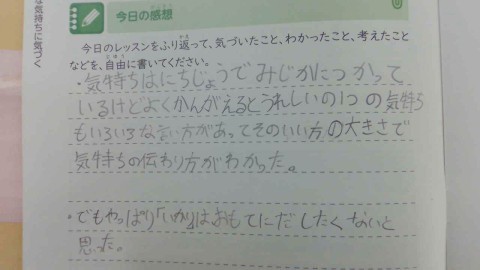 な気持ちに気づく
今日の感想
今日のレッスンをふり返って、気づいたこと、わかったこと、考えたこと
などを、自由に書いてください。
・気持ちはにちじょうでみじかにつかって
いるけどよくかんがえるとうれしいの1つの気持ち
もいろいろな言い方があってそのいい方の大きさで
気持ちの伝わり方がわかった。
・でもやっぱり「いかり」はおもてにだしたくないと
思った。